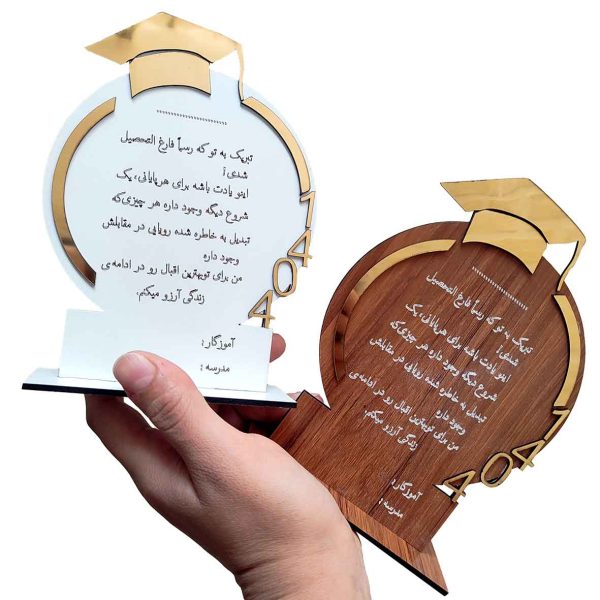 تبریک به تو که رسماً فارغ التحصیل
شدی!
اینو یادت باشه برای هر پایانی، یک
شروع دیگه وجود داره هر چیزی که
تبدیل به خاطره شده رویایی در مقابلش
وجود داره
من برای تو بهترین اقبال رو در ادامه‌ی
زندگی آرزو میکنم.
آموزگار:
مدرسه:
1404
تبریک به تو که رسماً فارغ التحصیل
شدی!
اینو یادت باشه برای هر پایانی، یک
شروع دیگه وجود داره هر چیزی که
تبدیل به خاطره شده رویایی در مقابلش
وجود داره
من برای تو بهترین اقبال رو در ادامه‌ی
زندگی آرزو میکنم.
آموزگار:
مدرسه:
1404